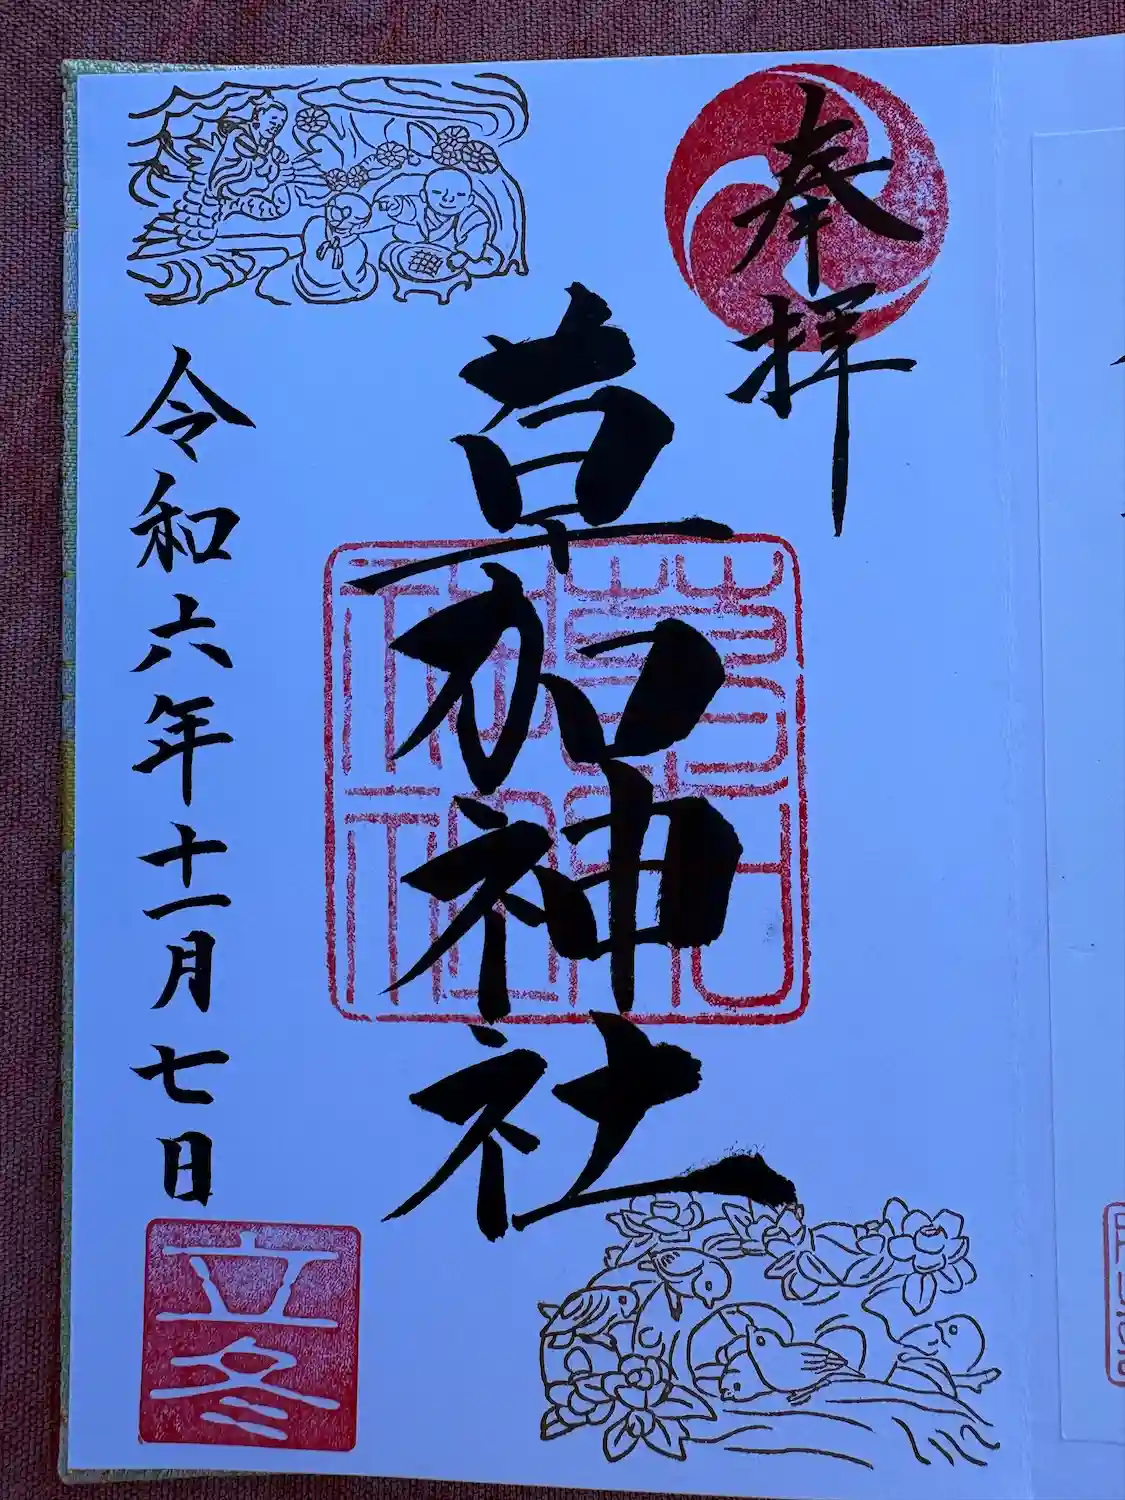 奉拝
草加神社
草加神社
令和六年十一月七日
立冬